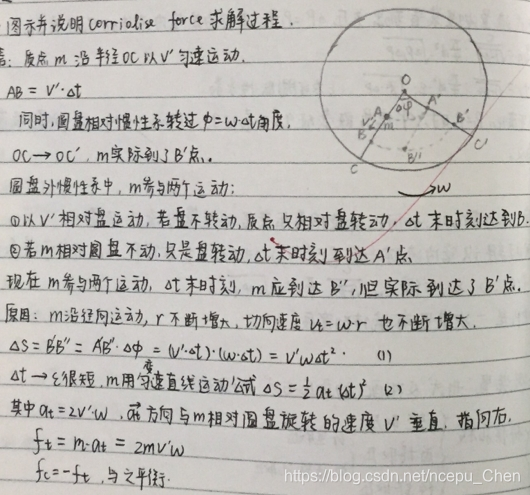 图示并说明 corrialise force 求解过程.
质点 m 沿半径OC以V'匀速运动.
AB = V'·Δt
同时,圆盘相对惯性系转过 φ=ω·Δt角度.
OC→OC', m实际到了B'点.
圆盘外惯性系中, m参与两个运动:
①以V'相对盘运动, 若盘不转动, 质点只相对盘转动, Δt末时刻达到B.
②若m相对圆盘不动,只是盘转动,Δt末时刻到达A'点.
现在m参与两个运动, Δt末时刻, m应到达B'',但实际到达了B'点.
原因: m沿径向运动, r不断增大, 切向速度 Vt=ω·r 也不断增大.
ΔS = B'B'' = A'B''·Δφ = (V'·Δt)·(ω·Δt) = V'ωΔt². (1)
Δt→ε很短, m用匀变速直线运动公式 ΔS=½at(Δt)² (2)
其中 at=2V'·ω, at方向与m相对圆盘旋转的速度V'垂直, 指向右.
ft = m·at = 2mV'ω
fc=-ft, 与之平衡.
O
φ
A
A'
V'
m
B
B'
B''
C
C'
ω
https://blog.csdn.net/ncepu_Chen